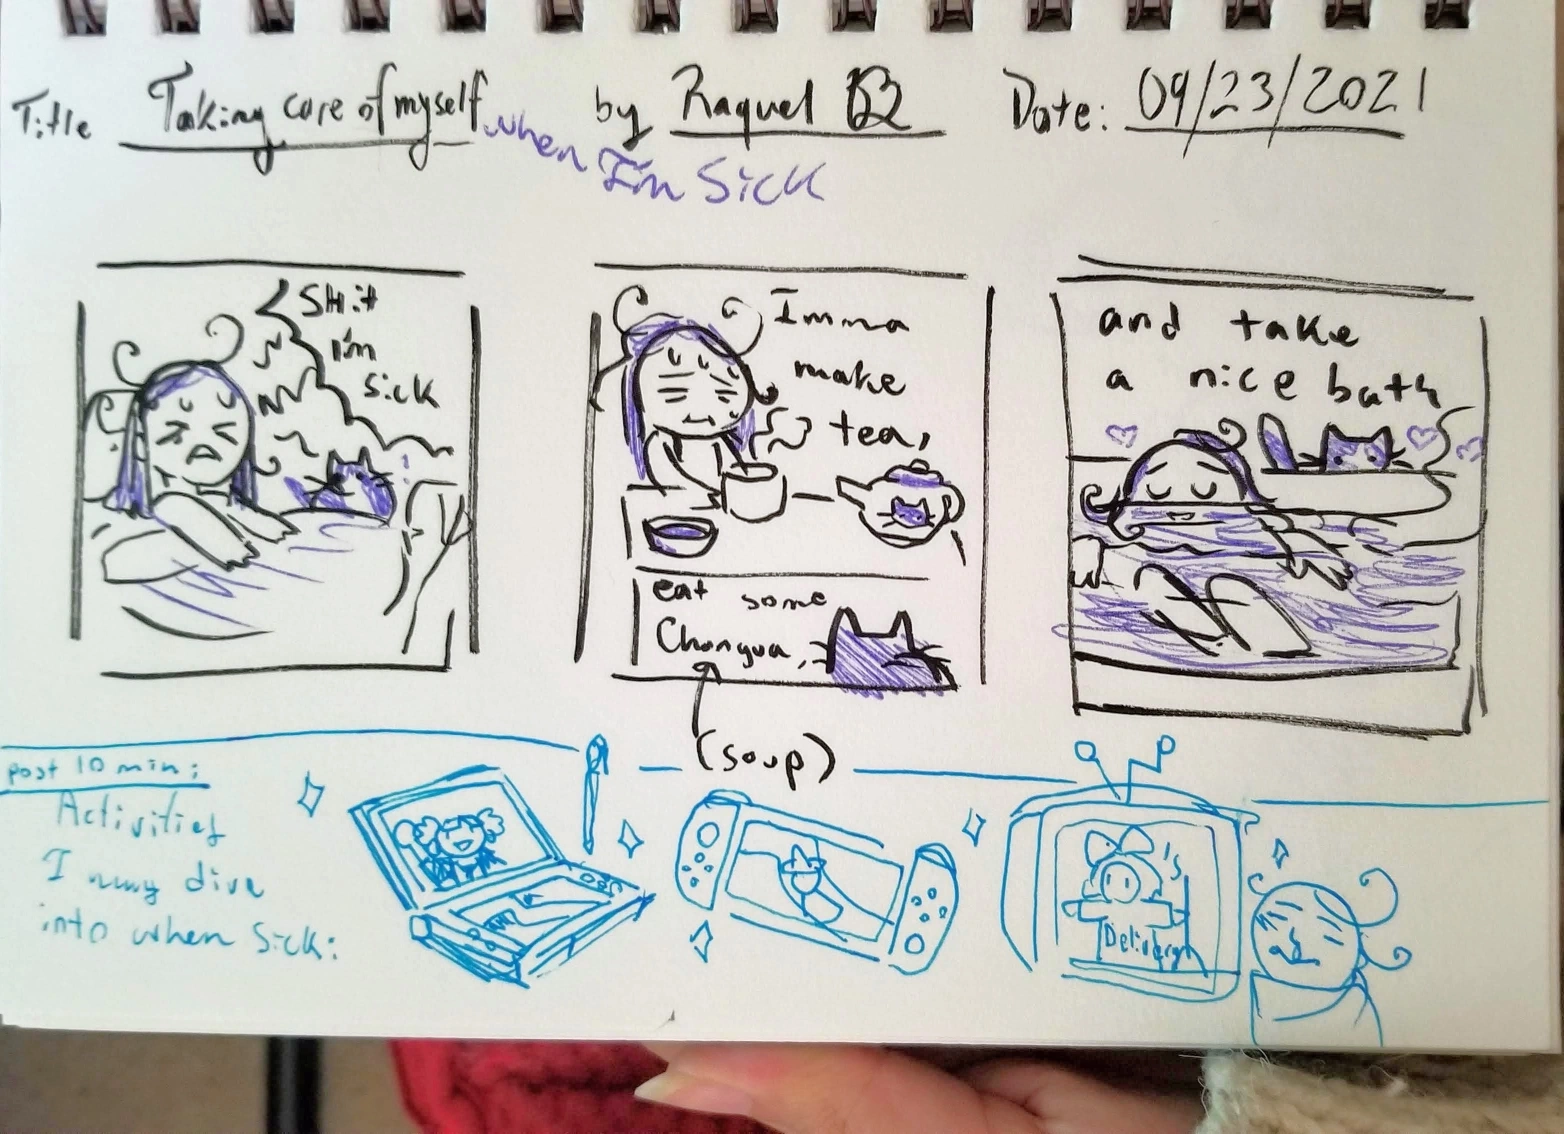 Title Taking care of myself by Raquel Date: 09/23/2021
when I'm Sick
Shit
I'm
sick
Imma
make
tea,
eat some
Changua,
(soup)
and take
a nice bath
post 10 min:
Activities
I may dive
into when sick:
Kiki's
Delivery